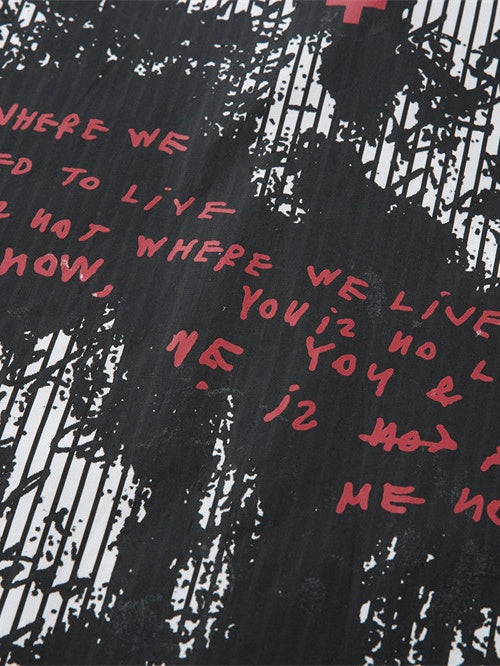 WHERE WE
ED TO LiVE
NOT WHERE WE LiVE
NOW, YOU iz NO L
ME YOU &
iz NOT
ME NO